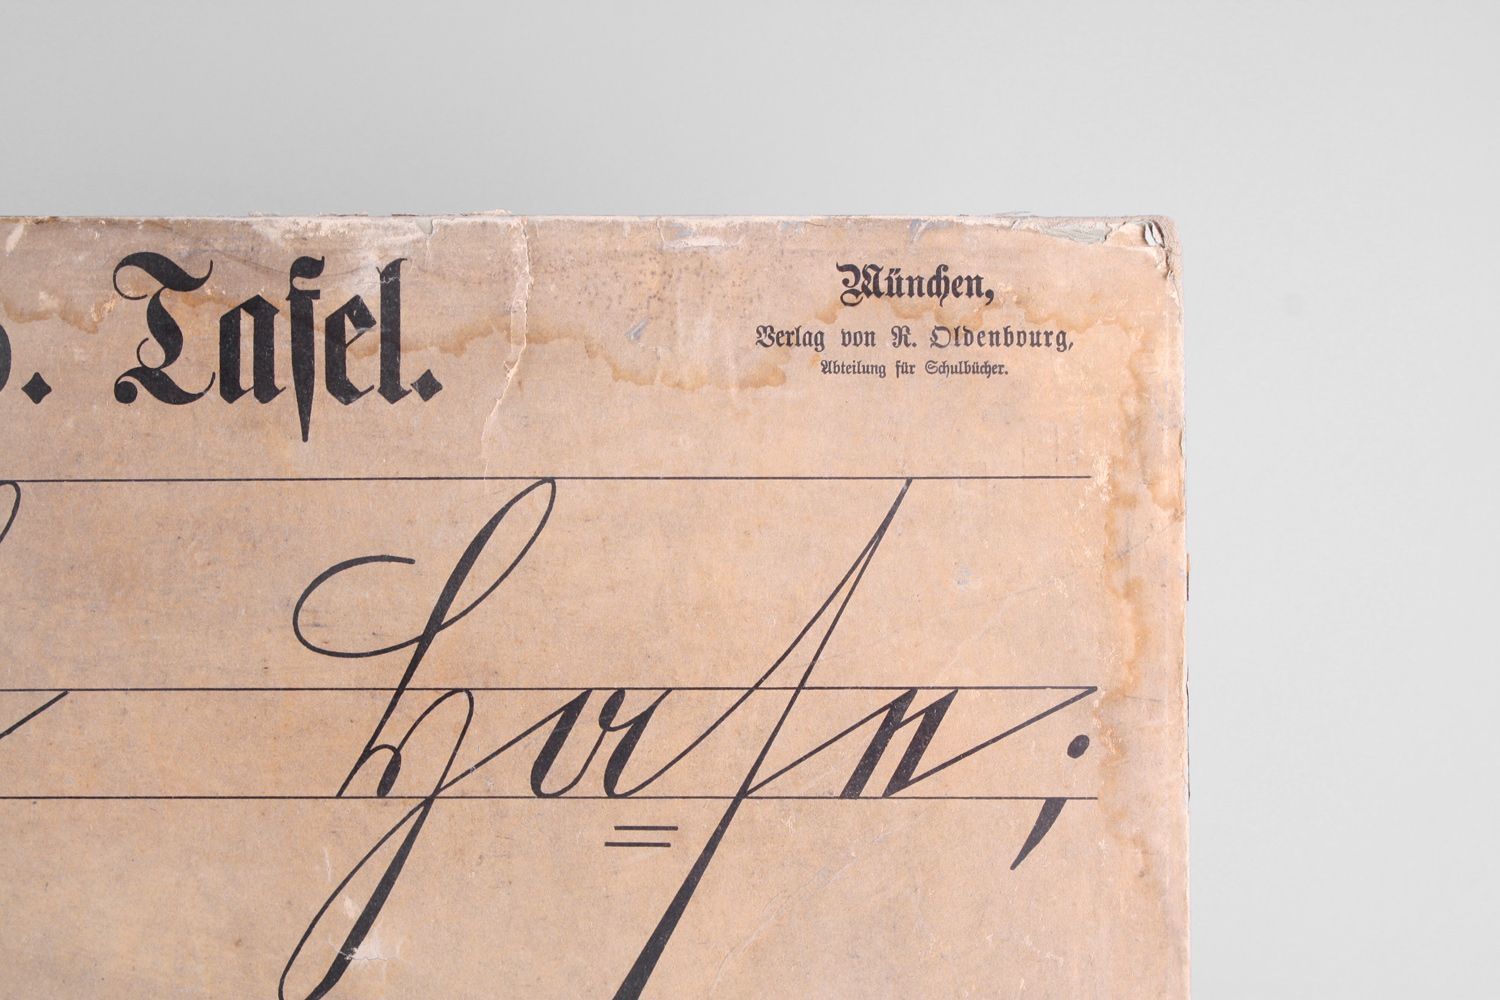 Tafel.
München,
Verlag von R. Oldenbourg,
Abteilung für Schulbücher.
Haſe;